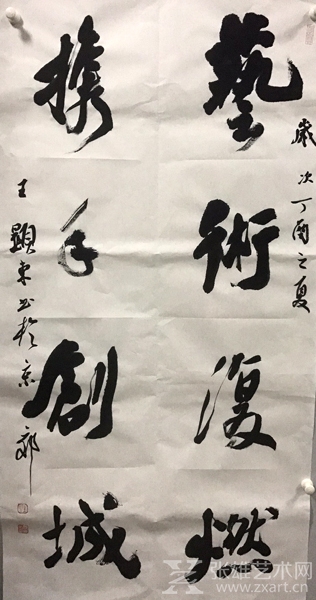 歲次丁酉之夏
藝術復燃
携手創城
王顯东书於京郊
张雄艺术网
www.zxart.cn